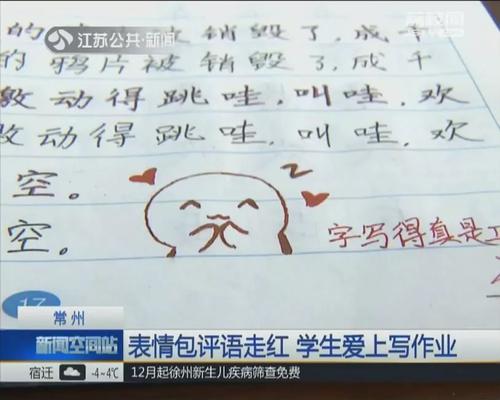 江苏公共·新闻
荔枝网
的 销毁了,成千
的鸦片被销毁了,成千
动得跳哇,叫哇,欢
动得跳哇,叫哇,欢
空。
空。
字写得真是
17
常州
新闻空间站
表情包评语走红 学生爱上写作业
宿迁 -4~4℃ 12月起徐州新生儿疾病筛查免费